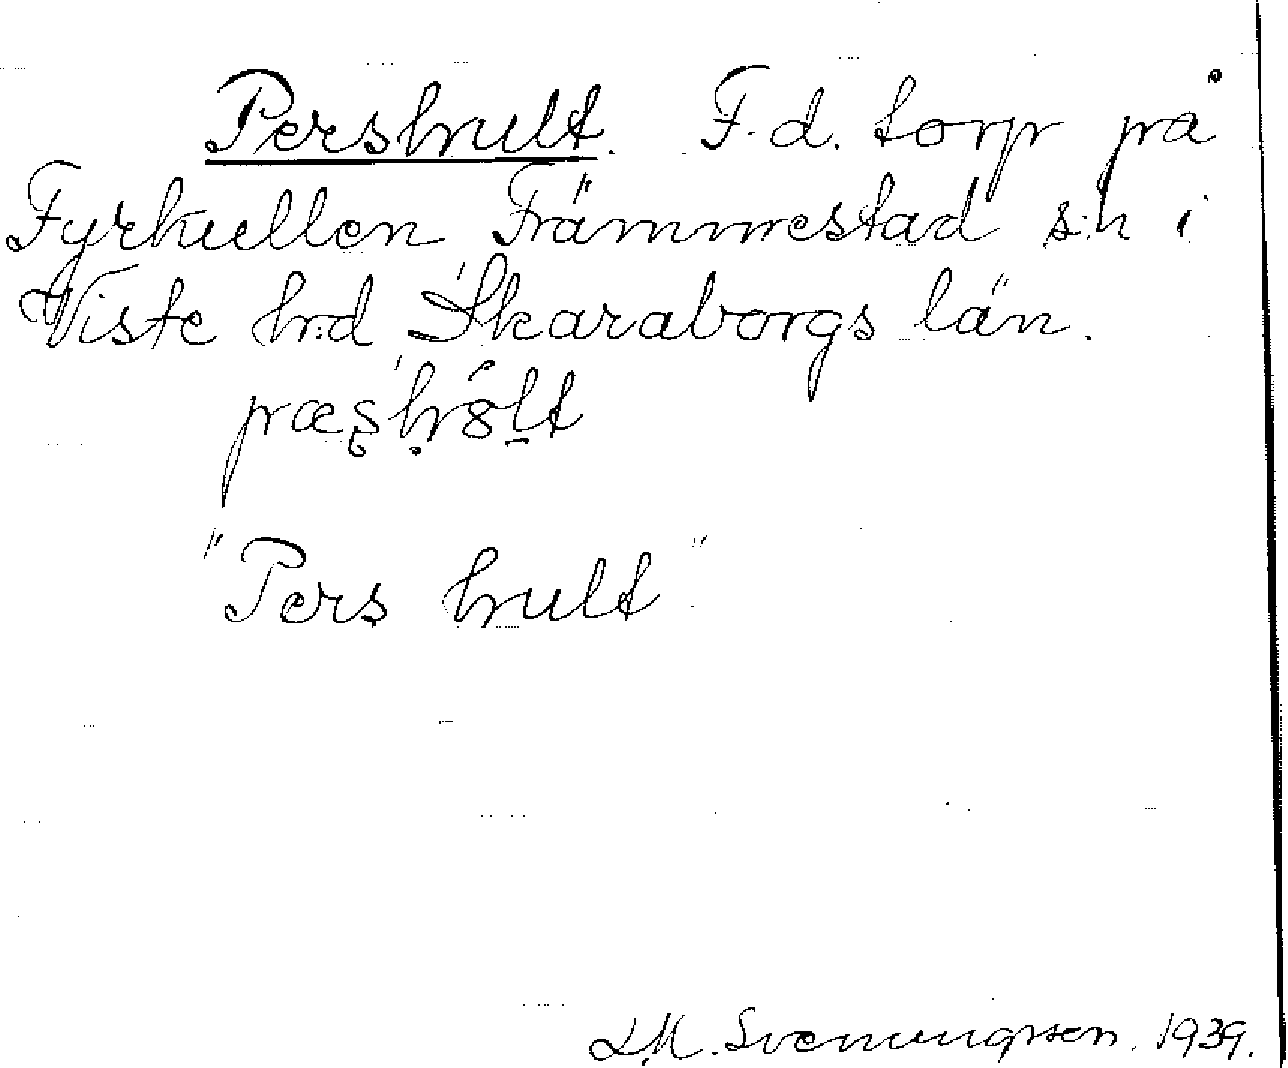 Pershult. F.d. torp på
Fyrkullen Främmestad s:n i
Viste h:d Skaraborgs län.
"Pers hult"
L.M. Svenungsson. 1939.